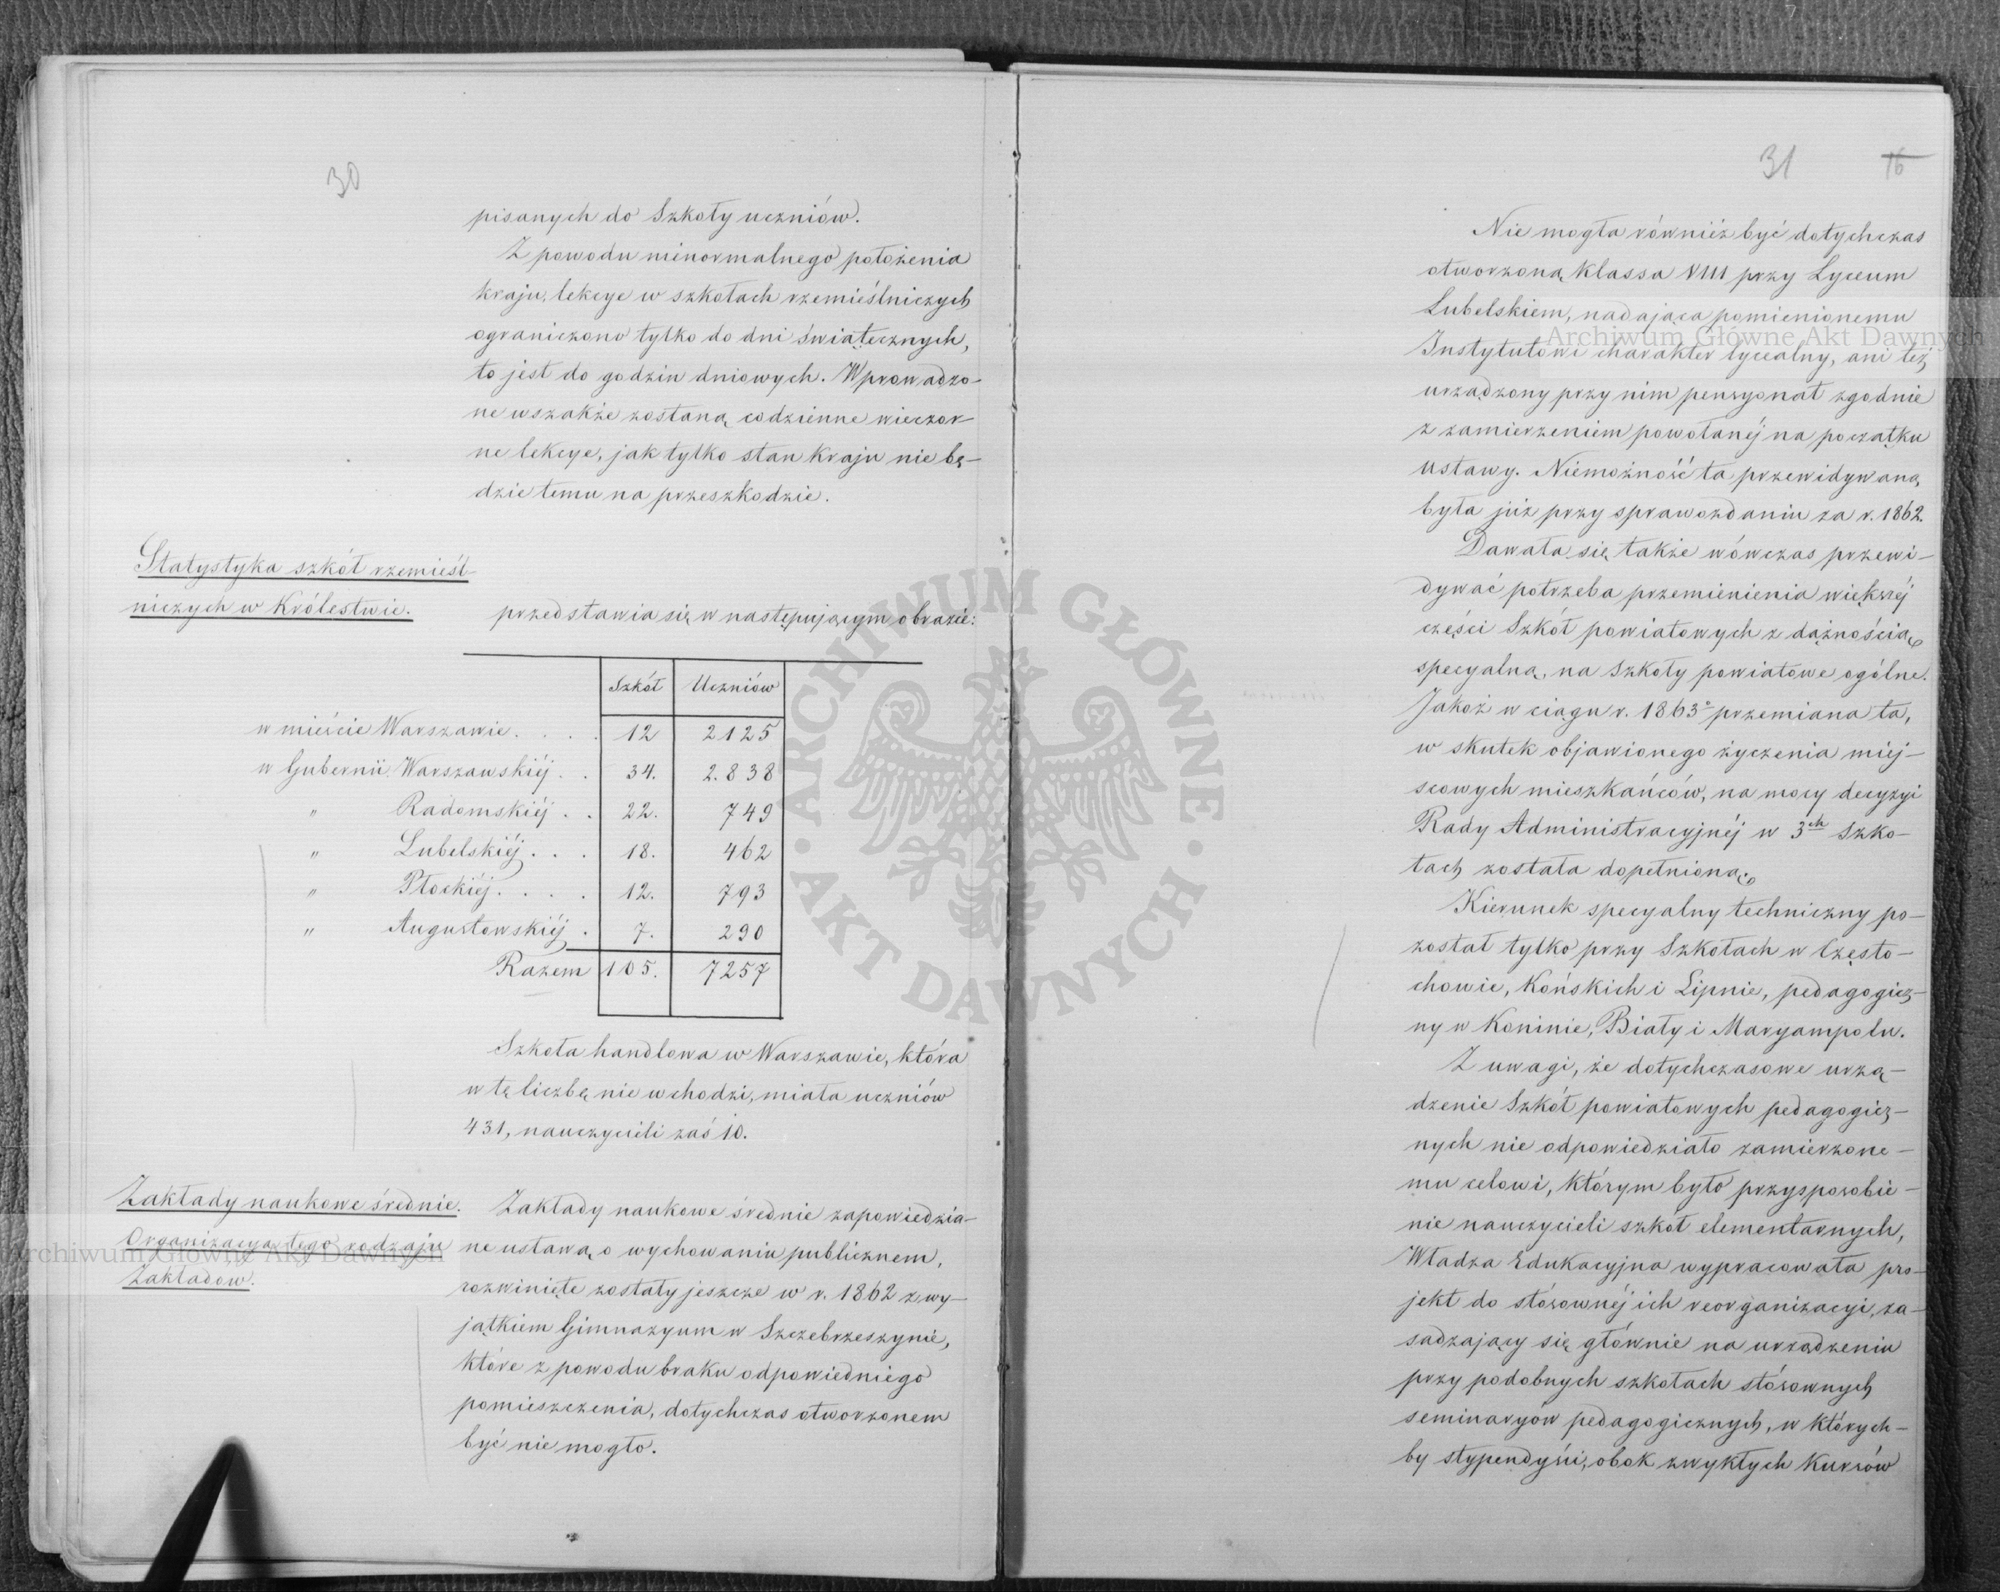 30
pisanych do Szkoły uczniów.
Z powodu nienormalnego położenia
kraju, lekcye w szkołach rzemieślniczych
ograniczono tylko do dni świątecznych,
to jest do godzin dniowych. Wprowadzo-
ne wszakże zostaną codzienne wieczor-
ne lekcye, jak tylko stan kraju nie bę-
dzie temu na przeszkodzie.
Statystyka szkół rzemieśl-
niczych w Królestwie.
przedstawia się w następującym obrazie:
Szkół Uczniów
w mieście Warszawie . . . . 12 2125
w Gubernii Warszawskiéj . . 34. 2.838
" Radomskiéj . . 22. 749
" Lubelskiéj . . . 18. 462
" Płockiéj . . . . 12. 793
" Augustowskiéj . 7. 290
Razem 105. 7257
Szkoła handlowa w Warszawie, która
w tę liczbę nie wchodzi, miała uczniów
431, nauczycieli zaś 10.
Zakłady naukowe średnie.
Organizacya tego rodzaju
Zakładów.
Zakłady naukowe średnie zapowiedzia-
ne ustawą o wychowaniu publicznem,
rozwinięte zostały jeszcze w r. 1862 z wy-
jątkiem Gimnazyum w Szczebrzeszynie,
które z powodu braku odpowiedniego
pomieszczenia, dotychczas otworzonem
być nie mogło.
31 16
Nie mogła również być dotychczas
otworzoną klassa VIII przy Lyceum
Lubelskiem, nadająca pomienionemu
Instytutowi charakter lycealny, ani też
urządzony przy nim pensyonat zgodnie
z zamierzeniem powołanéj na początku
ustawy. Niemożność ta przewidywaną
była już przy sprawozdaniu za r. 1862.
Dawała się także wówczas przewi-
dywać potrzeba przemienienia większéj
części Szkół powiatowych z dążnością
specyalną, na Szkoły powiatowe ogólne.
Jakoż w ciągu r. 1863º przemiana ta,
w skutek objawionego życzenia miéj-
scowych mieszkańców, na mocy decyzyi
Rady Administracyjnéj w 3ch Szko-
łach została dopełnioną.
Kierunek specyalny techniczny po-
został tylko przy Szkołach w Często-
chowie, Końskich i Lipnie, pedagogicz-
ny w Koninie, Biały i Maryampolu.
Z uwagi, że dotychczasowe urzą-
dzenie Szkół powiatowych pedagogicz-
nych nie odpowiedziało zamierzone-
mu celowi, którym było przysposobie-
nie nauczycieli szkół elementarnych,
Władza Edukacyjna wypracowała pro-
jekt do stósownéj ich reorganizacyi, za-
sadzający się głównie na urządzeniu
przy podobnych szkołach stósownych
seminaryów pedagogicznych, w których-
by stypendyści, obok zwykłych Kursów
ARCHIWUM GŁÓWNE AKT DAWNYCH
Archiwum Główne Akt Dawnych
Archiwum Główne Akt Dawnych